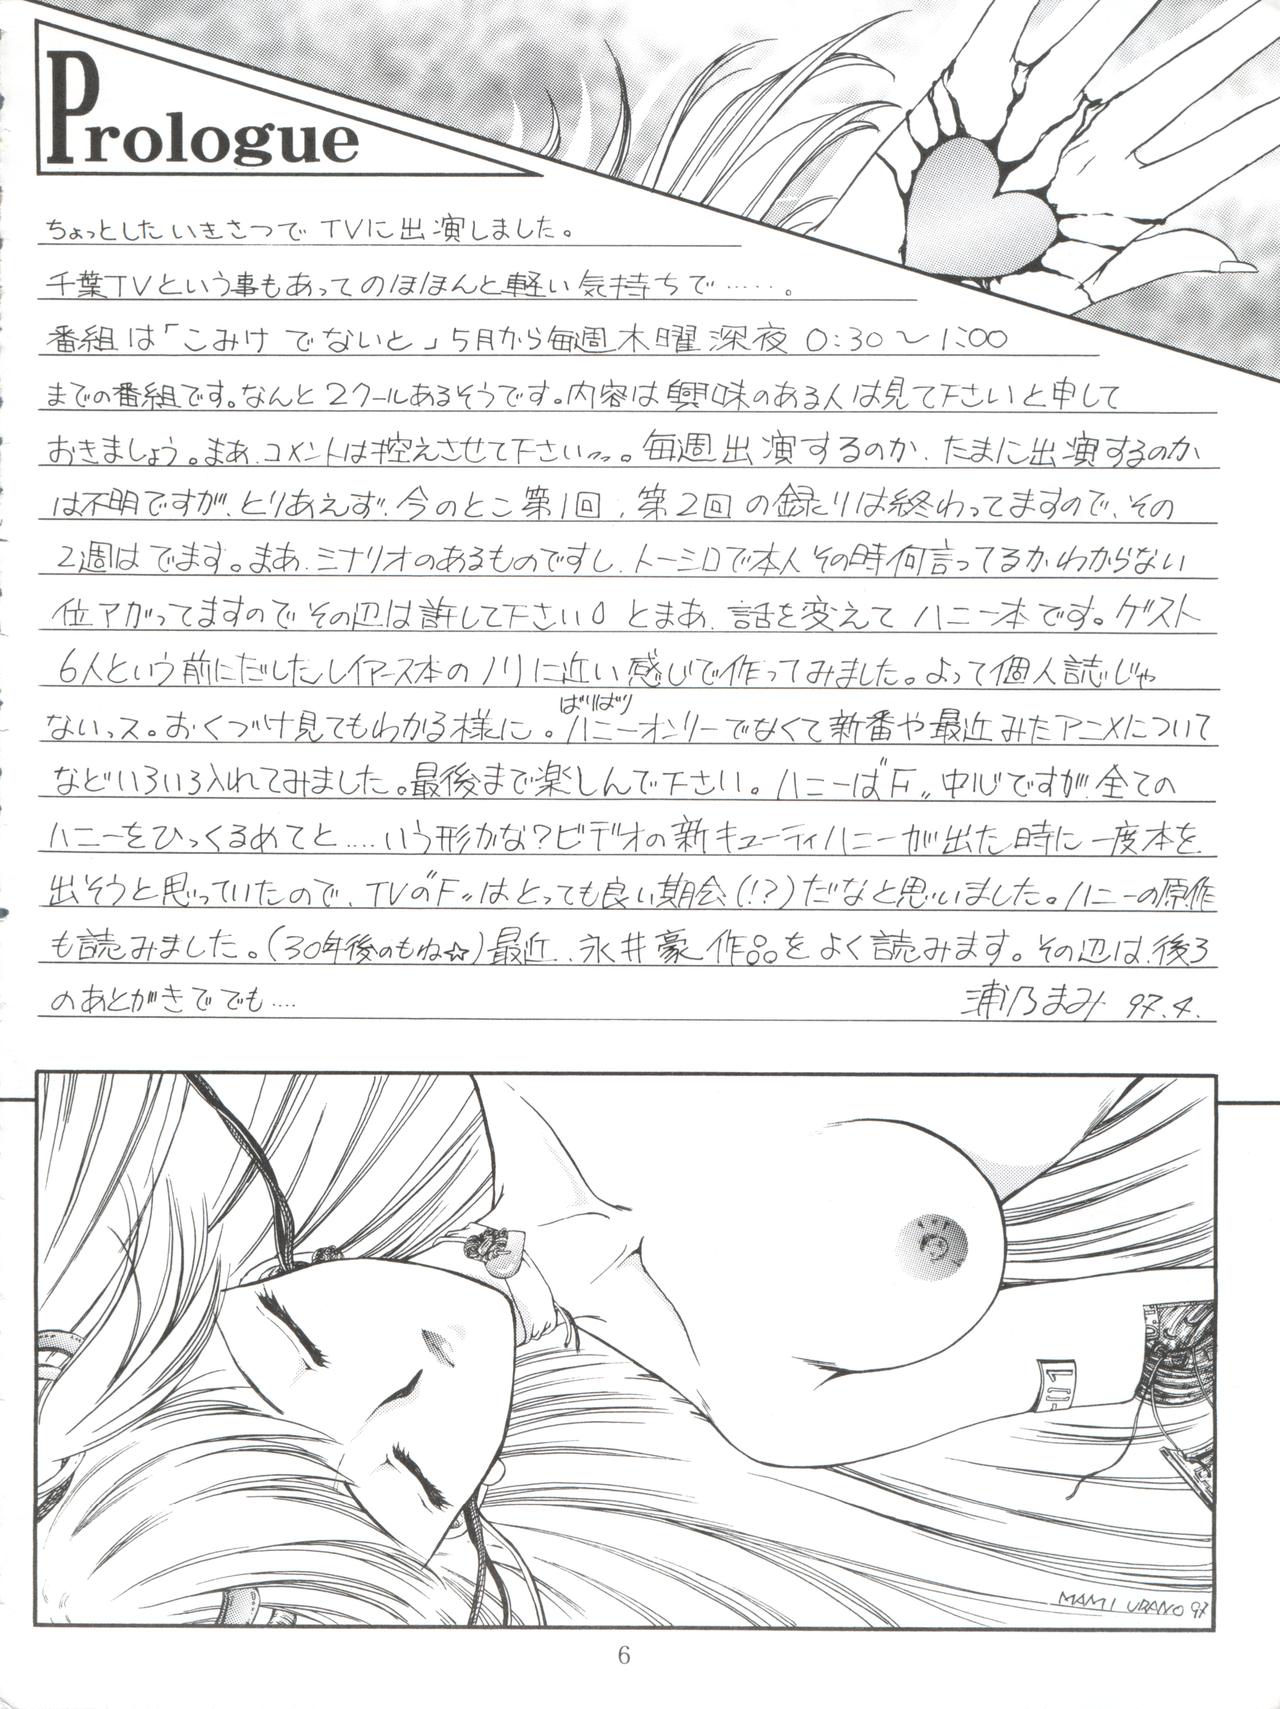 Prologue
ちょっとしたいきさつで TVに出演しました。
千葉TVという事もあってのほほんと軽い気持ちで……。
番組は「こみけ でないと」5月から毎週木曜深夜 0:30〜1:00
までの番組です。なんと2クールあるそうです。内容は興味のある人は見て下さいと申して
おきましょう。まあ、コメントは控えさせて下さいっっ。毎週出演するのか、たまに出演するのか
は不明ですが、とりあえず、今のとこ第1回、第2回の録りは終わってますので、その
2週はでます。まあ、ミナリオのあるものですし、トーシロで本人その時何言ってるかわからない
位アガってますのでその辺は許して下さい とまあ、話を変えて ハニー本です。ゲスト
6人という前にだしたレイアース本のノリに近い感じで作ってみました。よって個人誌じゃ
ないっス。おくづけ見てもわかる様に。ハニーオンリーでなくて新番や最近みたアニメについて
ばりばり
などいろいろ入れてみました。最後まで楽しんで下さい。ハニーは“F„中心ですが、全ての
ハニーをひっくるめてと....いう形かな?ビデオの新キューティハニーが出た時に一度本を
出そうと思っていたので、TVの“F„はとっても良い期会(!?)だなと思いました。ハニーの原作
も読みました。(30年後のもね☆)最近、永井豪作品をよく読みます。その辺は、後3
のあとがきででも....
浦乃まみ 97.4.
MAMI URANO 97
6